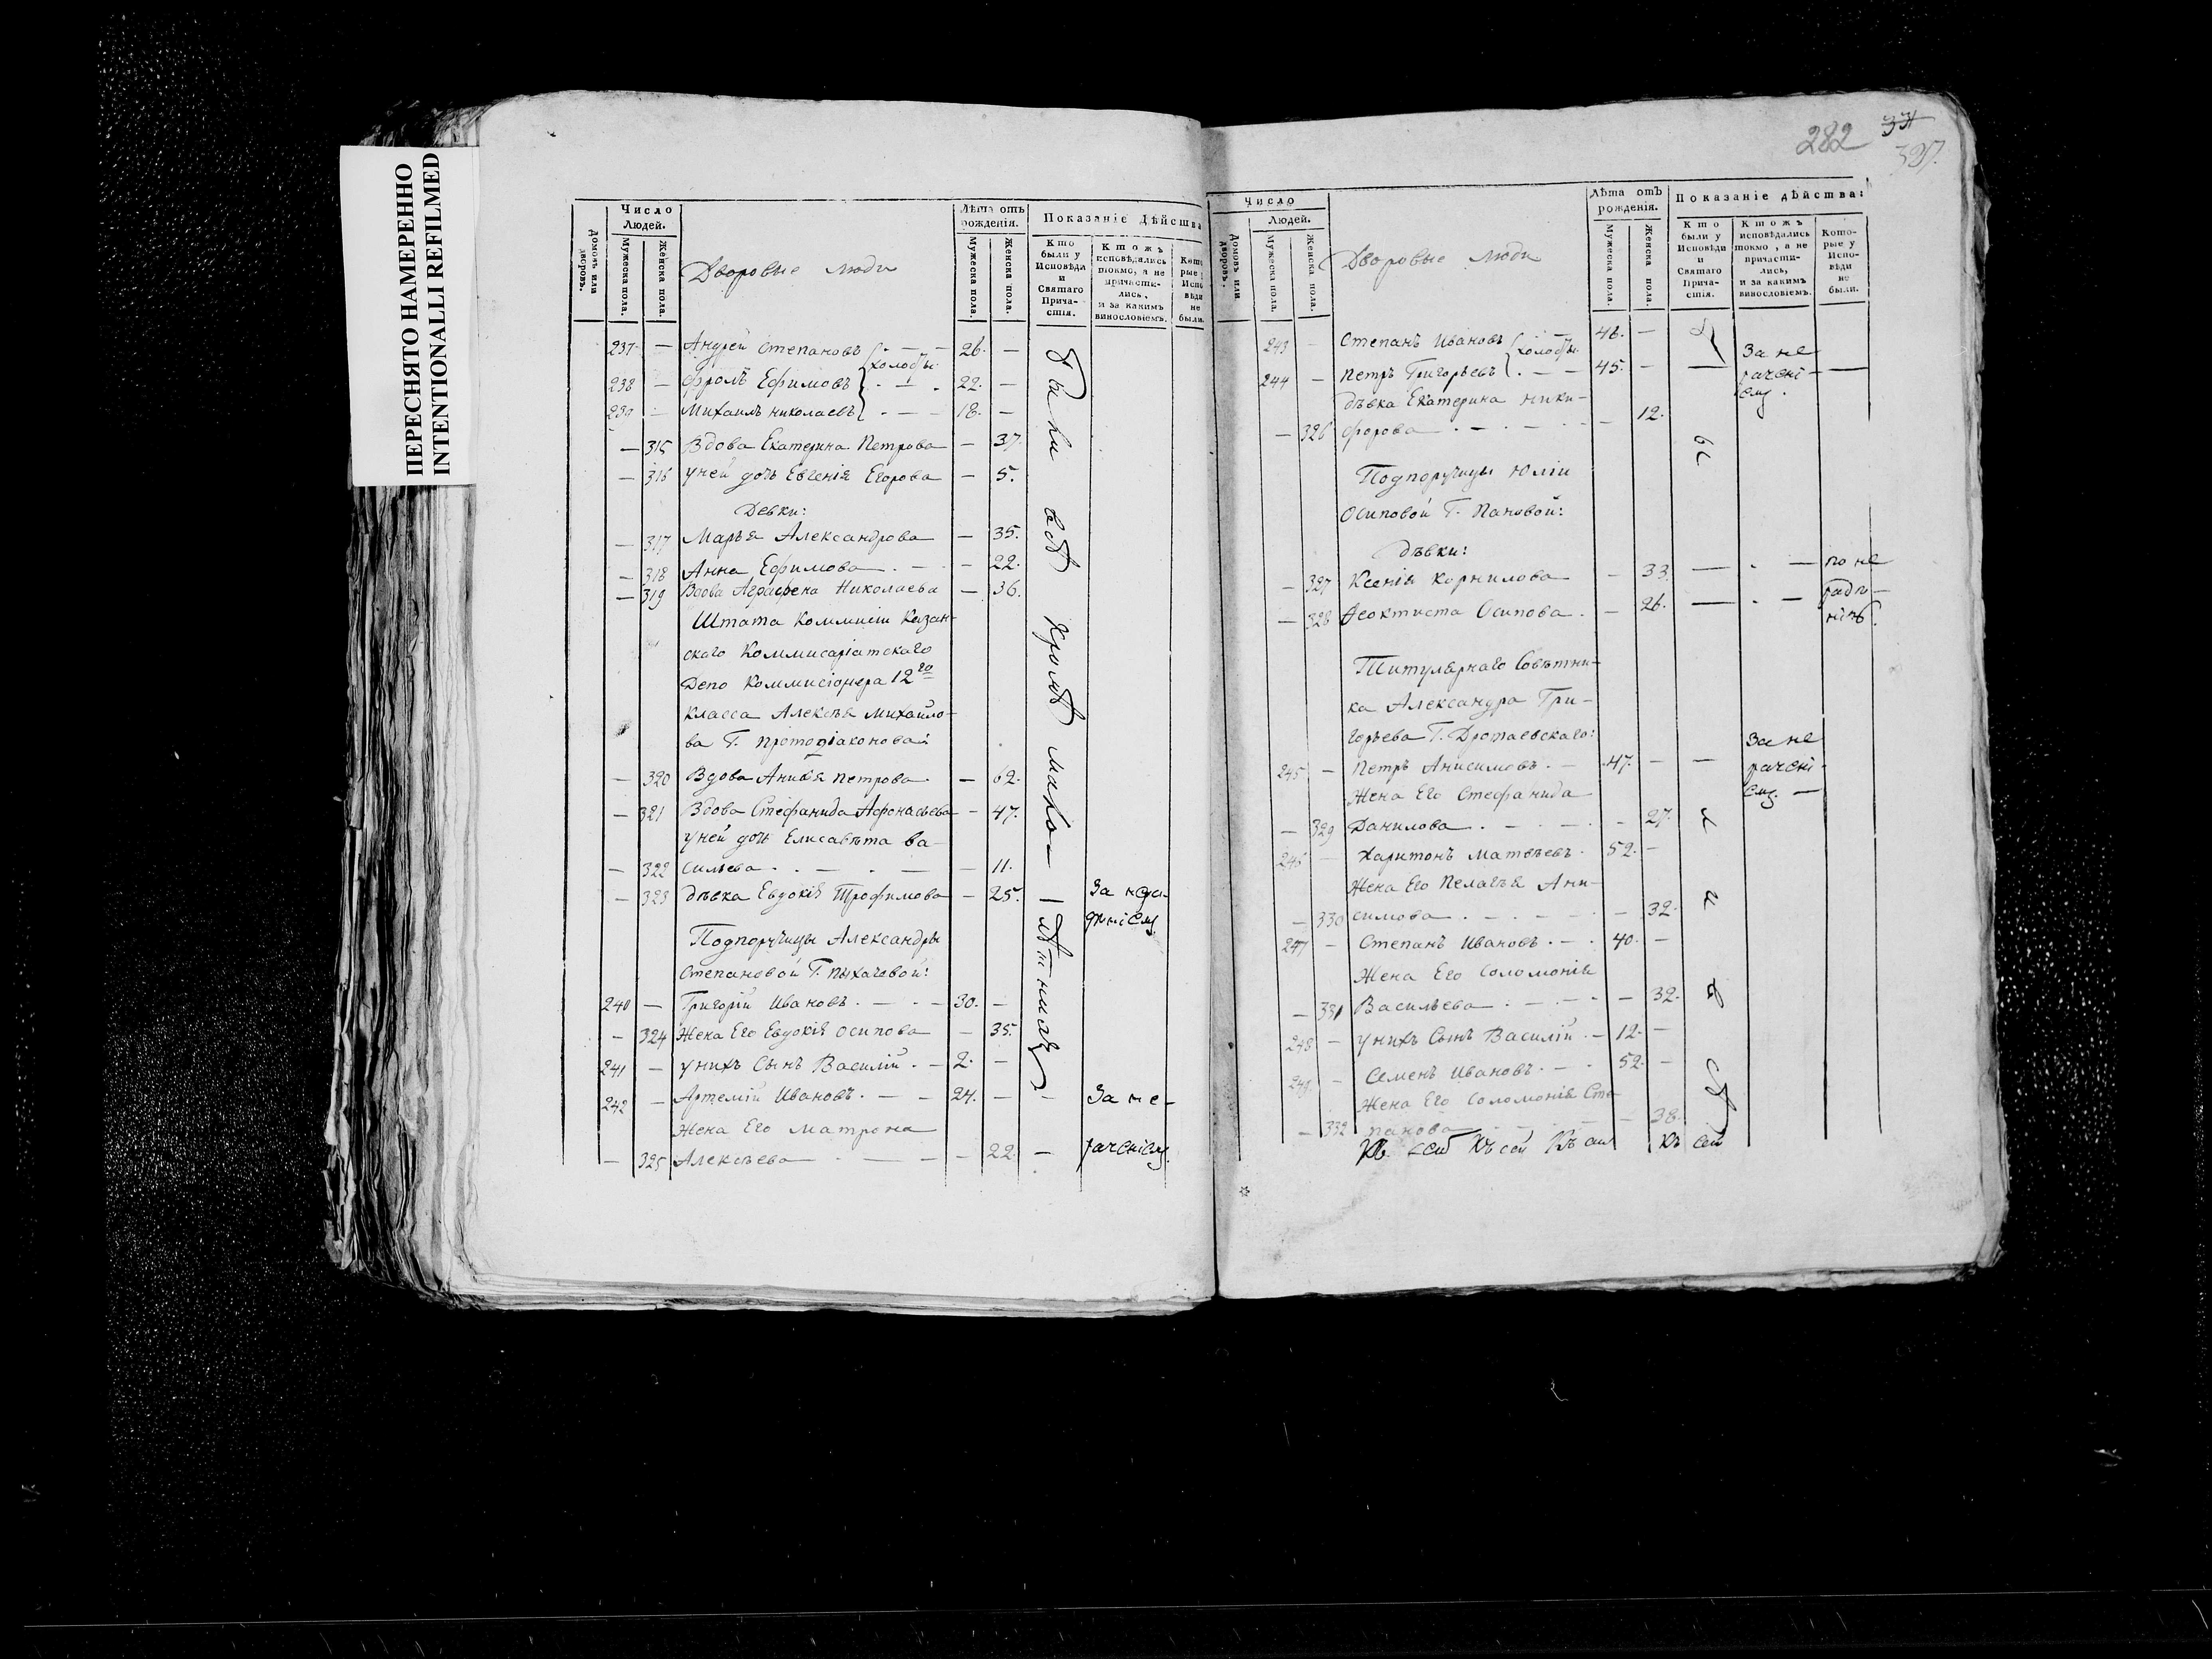 ПЕРЕСНЯТО НАМЕРЕННО
INTENTIONALLI REFILMED
Число
Людей.
Домовъ или дворовъ.
Мужеска пола.
Женска пола.
Дворовые люди
Лѣта отъ
рожденія.
Мужеска пола.
Женска пола.
Показаніе дѣйства
Кто
были у
Исповѣди
и
Святаго
Прича-
стія.
Ктожъ
исповѣдались
токмо, а не
причасти-
лись,
и за какимъ
винословіемъ.
рые
Испо
вѣди
не
были.
237 — Андрей Степановъ . — — 26. —
холосты
238 — Фролъ Ефимовъ . — . 22. —
239 — Михаилъ Николаевъ . — — 18. —
— 315 Вдова Екатерина Петрова — 37.
— 316 у ней дочь Евгенія Егорова — 5.
Девки:
— 317 Марья Александрова — 35.
— 318 Анна Ефимова . — — 22.
— 319 Вдова Аграфена Николаева — 36.
Штата Коммисіи Казан-
скаго Коммисаріатскаго
Депо Коммисіонера 12го
класса Алексѣя Михайло-
ва Г. Протодіаконова:
— 320 Вдова Петрова — 62.
— 321 Вдова Стефанида Афонасьева — 47.
у ней дочь Елисавѣта Ва-
— 322 сильева . . — . — — 11.
— 323 дѣвка Евдокія Трофимова — 25. За
Подпоручицы Александры
Степановой Г. Пыхачовой:
240 — Григорій Ивановъ . — . — 30. —
— 324 Жена Его Евдокія Осипова — 35.
241 — у нихъ Сынъ Василій . — 2. —
242 — Артемій Ивановъ . — — 24. — За не-
Жена Его Матрона
— 325 Алексѣева . — — 22. — раченіемъ
были всѣ кромѣ малолѣтнихъ
282
Число
Людей.
Домовъ или дворовъ.
Мужеска пола.
Женска пола.
Дворовые люди
Лѣта отъ
рожденія.
Мужеска пола.
Женска пола.
Показаніе дѣйства:
Кто
были у
Исповѣди
и
Святаго
Прича-
стія.
Ктожъ
исповѣдались
токмо, а не
причасти-
лись,
и за какимъ
винословіемъ.
Кото-
рые у
Испо-
вѣди
не
были.
243 — Степанъ Ивановъ — 46. —
холосты. За не
244 — Петръ Григорьевъ . — — 45. — — рачені- —
емъ.
дѣвка Екатерина Ники-
— 326 форова . — . — . — 12.
Подпоручицы Юліи
Осиповой Г. Пановой:
дѣвки:
— 327 Ксенія Корнилова — 33. — . — по не
— 328 Феоктиста Осипова . — 26. — . — ради-
нію.
Титулярнаго Совѣтни-
ка Александра Гри-
горьева Г.
245 — Петръ Анисимовъ . — 47. — — За не
рачені-
емъ. —
Жена Его Стефанида
— 329 Данилова . — . — . — 27.
246 — Харитонъ Матвѣевъ . 52. —
Жена Его Пелагѣя Ани-
— 330 симова . — . — . — — 32.
247 — Степанъ Ивановъ . — . 40. —
Жена Его Соломонія
— 331 Васильева . — . — . — 32.
248 — у нихъ Сынъ Василій . — 12. —
249. — Семенъ Ивановъ . — . 52. —
Жена Его Соломонія Сте-
— 332 панова — — 38.